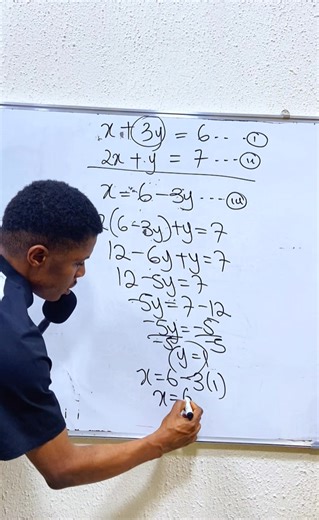 x + 3y = 6 --- (i)
2x + y = 7 ---- (ii)
x = 6 - 3y ---- (iii)
2(6 - 3y) + y = 7
12 - 6y + y = 7
12 - 5y = 7
-5y = 7 - 12
-5y = -5
-5 -5
y = 1
x = 6 - 3(1)
x = 6